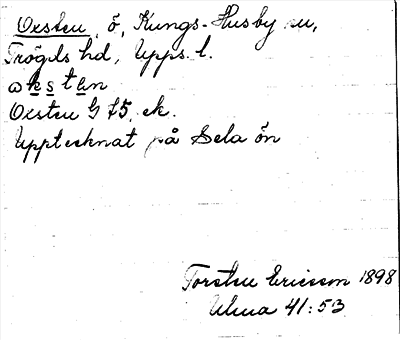 Oxsten, ö, Kungs-Husby sn,
Trögds hd, Upps. l.
ωkstan
Oxsten G 75, ek.
Upptecknat på Sela ön
Torsten Ericsson 1898
Ulma 41:53